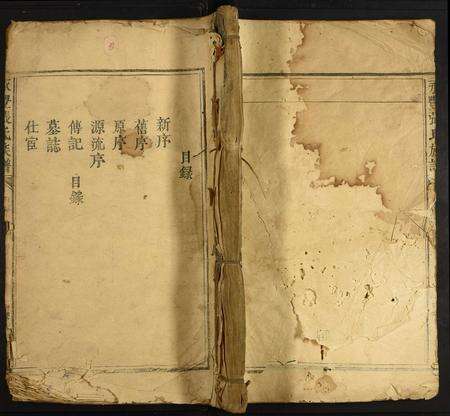 目錄
新序
舊序
原序
源流序
傳記 目錄
墓誌
仕宦